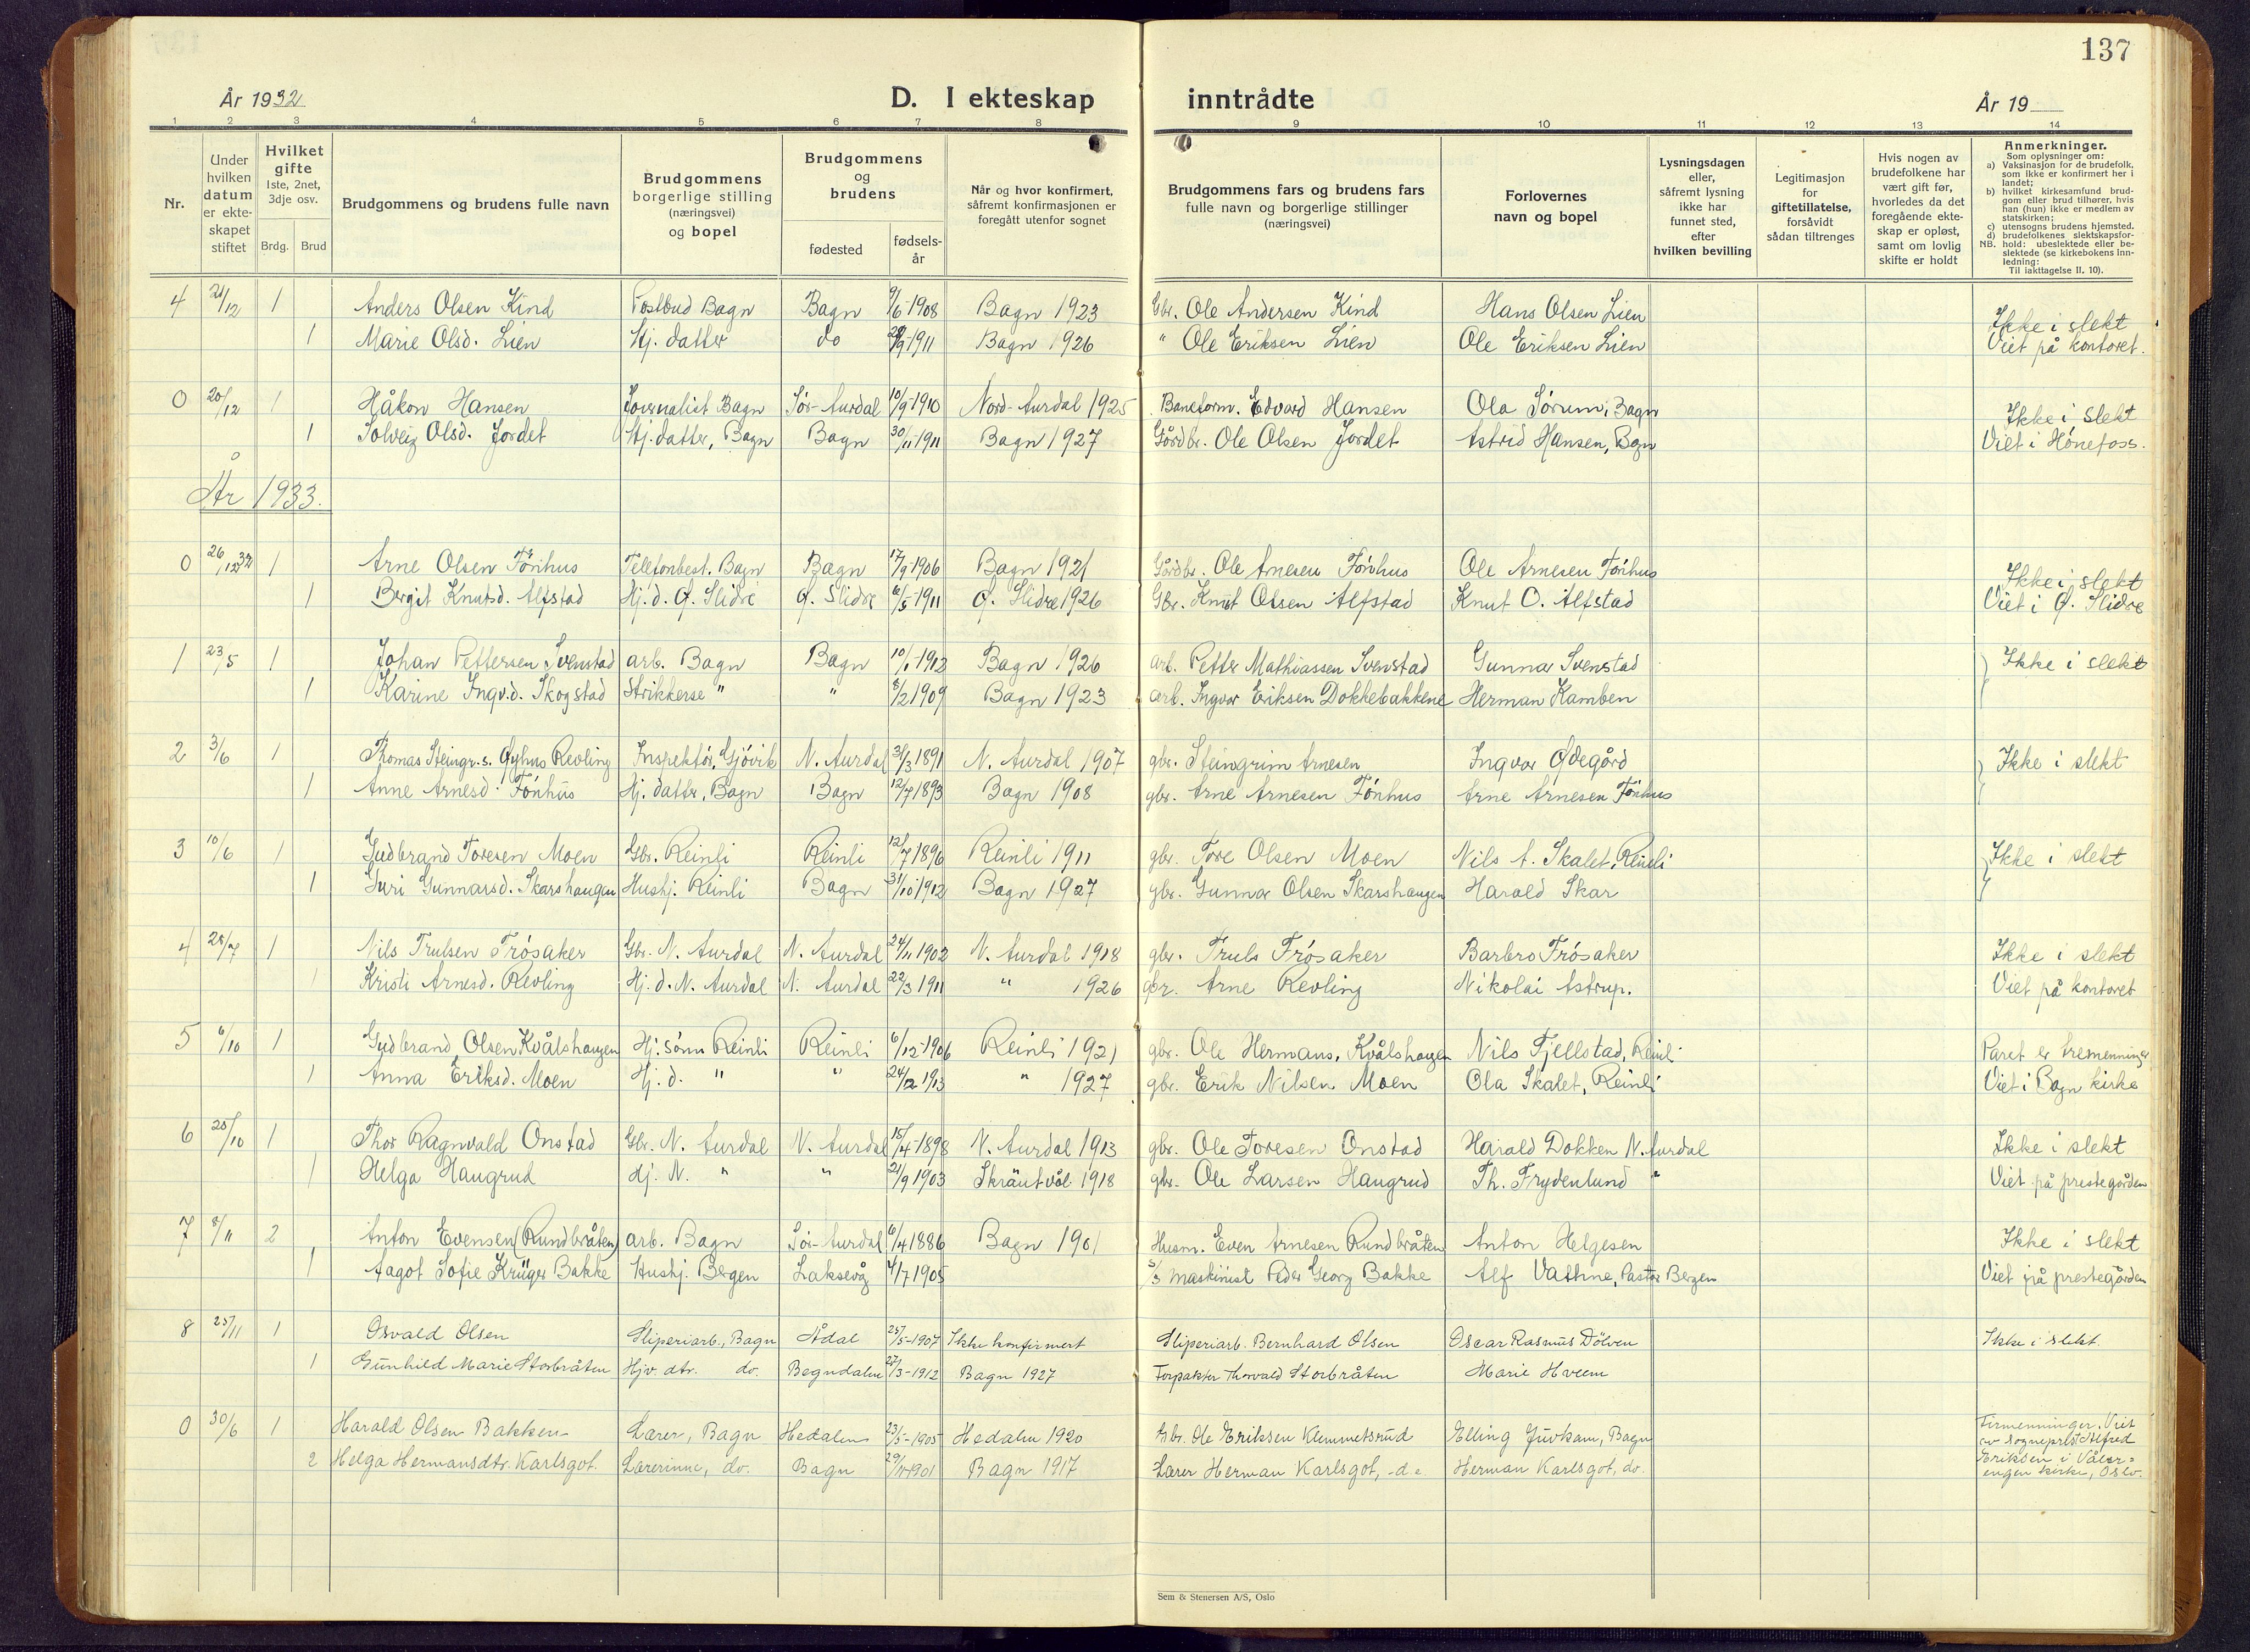 137
År 1932
D. I ekteskap inntrådte
År 19
1 2 3 4 5 6 7 8 9 10 11 12 13 14
Nr.
Under hvilken datum er ekteskapet stiftet
Hvilket gifte 1ste, 2net, 3dje osv.
Brdg. Brud
Brudgommens og brudens fulle navn
Brudgommens borgerlige stilling (næringsvei) og bopel
Brudgommens og brudens
fødested
fødselsår
Når og hvor konfirmert, såfremt konfirmasjonen er foregått utenfor sognet
Brudgommens fars og brudens fars fulle navn og borgerlige stillinger (næringsvei)
Forlovernes navn og bopel
Lysningsdagen eller, såfremt lysning ikke har funnet sted, efter hvilken bevilling
Legitimasjon for giftetillatelse, forsåvidt sådan tiltrenges
Hvis nogen av brudefolkene har vært gift før, hvorledes da det foregående ekteskap er opløst, samt om lovlig skifte er holdt
Anmerkninger.
Som oplysninger om:
a) Vaksinasjon for de brudefolk, som ikke er konfirmert her i landet;
b) hvilket kirkesamfund brudgom eller brud tilhører, hvis han (hun) ikke er medlem av statskirken;
c) utensogns brudens hjemsted.
d) brudefolkenes slektskapsforhold: ubeslektede eller beslektede (se kirkebokens innledning:
NB. Til iakttagelse II. 10).
4 21/12 1 Anders Olsen Kind Postbud Bagn Bagn 9/6 1908 Bagn 1923 Gbr. Ole Andersen Kind Hans Olsen Lien Ikke i slekt
1 Marie Olsd. Lien Hj. datter do 1911 Bagn 1926 " Ole Eriksen Lien Ole Eriksen Lien Viet på kontoret.
0 20/12 1 Håkon Hansen Journalist Bagn Sør-Aurdal 10/9 1910 Nord-Aurdal 1925 Baneform. Edvard Hansen Ola Sørum, Bagn Ikke i slekt
1 Solveig Olsd. Jordet Hj. datter, Bagn Bagn 30/11 1911 Bagn 1927 Gårdbr. Ole Olsen Jordet Astrid Hansen, Bgn Viet i Hønefoss.
År 1933.
0 26/12 32 1 Arne Olsen Fönhus Telefonbest. Bagn Bagn 17/9 1906 Bagn 1921 Gårdbr. Ole Arnesen Fönhus Ole Arnesen Fönhus Ikke i slekt
1 Bergit Knutsd. Alfstad Hj. d. Ø. Slidre Ø. Slidre 6/5 1911 Ø. Slidre 1926 Gbr. Knut Olsen Alfstad Knut O. Alfstad Viet i Ø. Slidre
1 23/5 1 Johan Pettersen Svenstad arb. Bagn Bagn 10/1 1912 Bagn 1926 arb. Petter Mathiassen Svenstad Gunnar Svenstad Ikke i slekt
1 Karine Ingv.d. Skogstad Strikkerse " " 8/2 1909 Bagn 1923 arb. Ingvar Eriksen Dokkebakkene Herman Kamben
2 3/6 1 Thomas Steingr.s. Øyhus Revling Inspektør, Gjövik N. Aurdal 31/3 1891 N. Aurdal 1907 gbr. Steingrim Arnesen Ingvar Ødegård Ikke i slekt
1 Anne Arnesd. Fönhus Hj. datter, Bagn Bagn 12/7 1893 Bagn 1908 gbr. Arne Arnesen Fönhus Arne Arnesen Fönhus
3 10/6 1 Gudbrand Toresen Moen Gbr. Reinli Reinli 12/7 1896 Reinli 1911 gbr. Tore Olsen Moen Nils A. Skalet, Reinli Ikke i slekt
1 Guri Gunnarsd. Skarshaugen Hushj. Reinli Bagn 31/10 1912 Bagn 1927 gbr. Gunnar Olsen Skarshaugen Harald Skar
4 28/7 1 Nils Trulsen Frösaker Gbr. N. Aurdal N. Aurdal 24/11 1902 N. Aurdal 1918 gbr. Truls Frösaker Barbro Frösaker Ikke i slekt
1 Kristi Arnesd. Revling Hj. d. N. Aurdal N. Aurdal 22/3 1911 " 1926 gbr. Arne Revling Nikolai Astrup. Viet på kontoret
5 6/10 1 Gudbrand Olsen Kvålshaugen Hj. sönn Reinli Reinli 6/12 1906 Reinli 1921 gbr. Ole Hermans. Kvålshaugen Nils Fjellstad, Reinli Paret er tremenninger
1 Anna Eriksd. Moen Hj. d. " " 24/2 1913 " 1927 gbr. Erik Nilsen Moen Ola Skalet, Reinli Viet i Bagn kirke
6 28/10 1 Thor Ragnvald Onstad Gbr. N. Aurdal N. Aurdal 15/4 1898 N. Aurdal 1913 gbr. Ole Toresen Onstad Harald Dokken N. Aurdal Ikke i slekt
1 Helga Haugrud dj. N. " " 21/9 1903 Skrautvål 1918 gbr. Ole Larsen Haugrud Th. Frydenlund " Viet på prestegården
7 8/11 2 Anton Evensen (Rundbråten) arb. Bagn Sør-Aurdal 6/4 1886 Bagn 1901 Husm. Even Arnesen Rundbråten Anton Helgesen Ikke i slekt
1 Aagot Sofie Krüger Bakke Hushj. Bergen Laksevåg 4/7 1905 maskinist Peder Georg Bakke Alf Vathne, Pastor Bergen Viet på prestegården
8 25/11 1 Osvald Olsen Sliperiarb., Bagn Ådal 25/5-1907 Ikke konfirmert Sliperiarb. Bernhard Olsen Oscar Rasmus Dölven Ikke i slekt.
1 Gunhild Marie Storbråten Hjv. dtr. do. Begndalen 27/3-1912 Bagn 1927 Forpakter Thorvald Storbråten Marie Hveem
0 30/6 1 Harald Olsen Bakken Lærer, Bagn Hedalen 23/5-1905 Hedalen 1920 Gbr. Ole Eriksen Klemmetsrud Elling Juvkam, Bagn Firmenninger. Viet av sogneprest Alfred
2 Helga Hermansdtr. Karlsgot. Lærerinne, do. Bagn 29/11-1901 Bagn 1917 Lærer Herman Karlsgot, -d= Herman Karlsgot, do. Eriksen i Vålerengen kirke, Oslo.
Sem & Stenersen A/S, Oslo